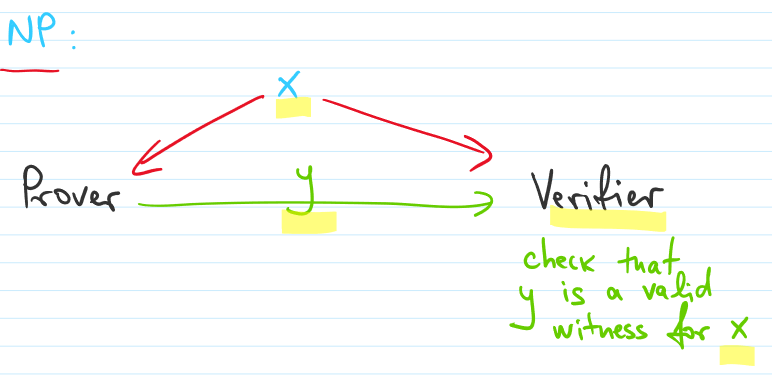 NP:
x
y
Prover
Verifier
check that
y is a valid
witness for x